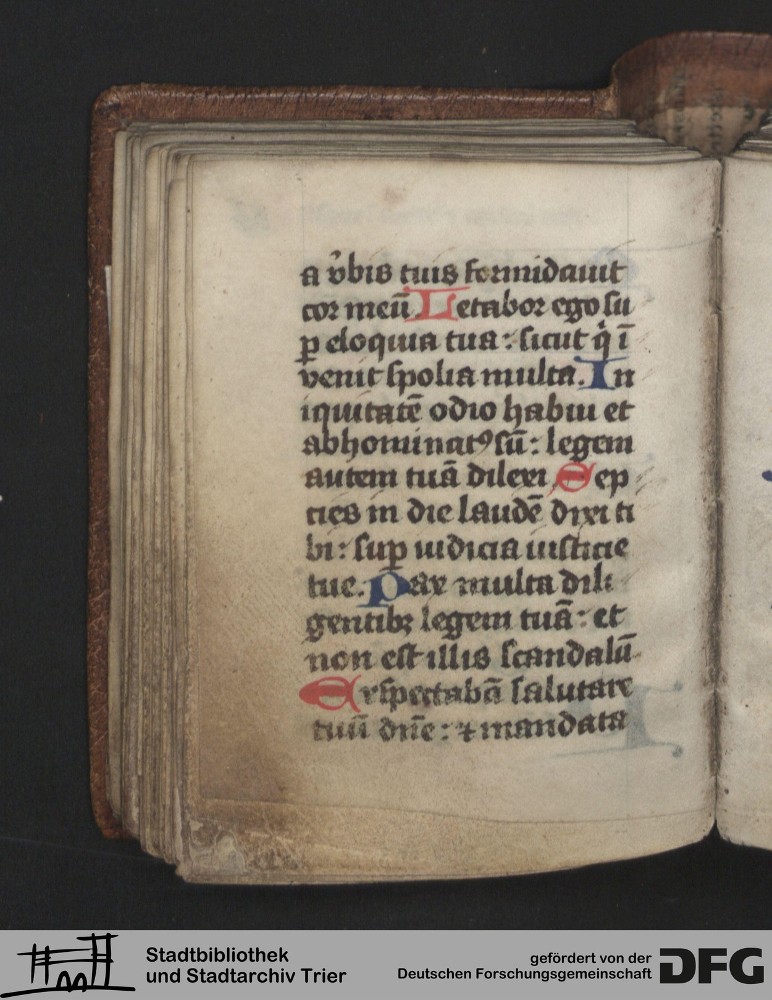 a v̓bis tuis formidauit
cor meū. Letabor ego su
ꝑ eloquia tua: sicut q̇ ī
venit spolia multa. In
iquitatē odio habui et
abhominatꝰ sū: legem
autem tuā dilexi Sep
ties in die laudē dixi ti
bi: suꝑ iudicia iusticie
tue. Pax multa dili
gentibꝫ legem tuā: et
non est illis scandalū
Exspectabā salutare
tuū dn̄e: ⁊ mandata
Stadtbibliothek
und Stadtarchiv Trier
gefördert von der
Deutschen Forschungsgemeinschaft
DFG